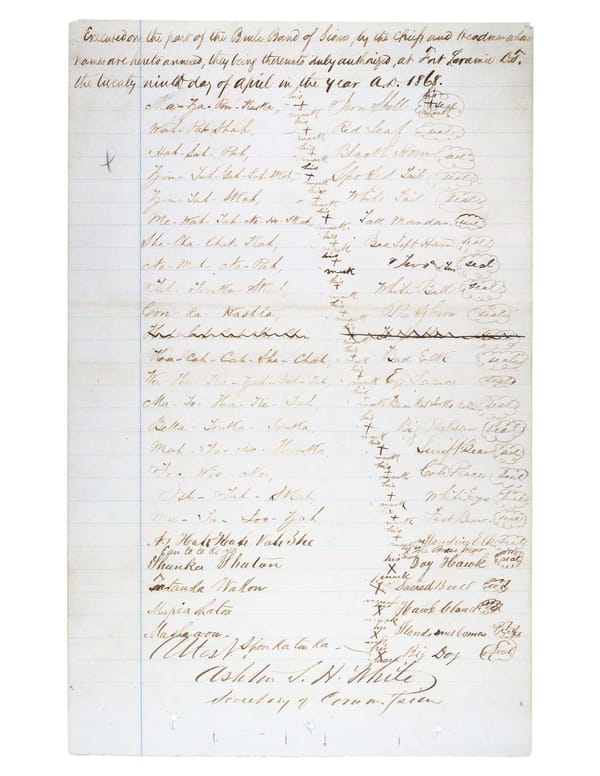 Executed on the part of the Brule Band of Sioux, by the Chiefs and Headmen whose
names are hereto annexed, they being thereunto duly authorized, at Fort Laramie D.T.
the twenty ninth day of April in the year A.D. 1868.
Ma-Za-Pon-Kaska, his + mark Iron Shell his + mark seal
Wah-Pah-Shah, his + mark Red Leaf seal
Hah-Sah-Pah, his + mark Black Horn seal
Zin-Tah-Gah-Lah-Skah, his + mark Spotted Tail seal
Zin-Tah-Skah, his + mark White Tail seal
Me-Wah-Tah-Ne-Ho-Skah, his + mark Tall Mandan seal
She-Cha-Chat-Kah, his + mark Bad Left Hand seal
No-Mah-No-Pah, his + mark Two and Two seal
Tah-Tonka-Skah, his + mark White Bull seal
Con-Ra-Washta, his + mark Pretty Crow seal
Ha-Cah-Cah-She-Chah, his + mark Bad Elk seal
Wa-Ha-Ka-Zah-Ish-Tah, his + mark Eye Lance seal
Ma-To-Ha-Ke-Tah, his + mark Bear that looks behind seal
Bella-Tonka-Tonka, his + mark Big Partisan seal
Mah-To-Ho-Honka, his + mark Swift Bear seal
To-Wis-Ne, his + mark Cold Place seal
Ish-Tah-Skah his + mark White Eyes seal
Ma-Ta-Loo-Zah his + mark Fast Bear seal
As Hah Kah Nah Zhe his + mark Standing Elk seal
Can te te ki ya The Brave Heart
Shunka Shaton his X mark Day Hawk seal
Tatanka Wakon his X mark Sacred Bull seal
Mapia Shaton his X mark Hawk Cloud seal
Ma Sha a ow his X mark Stands and Comes
Shon ka ton ka his X mark Big Dog seal
Attest
Ashton S. H. White
Secretary of Commission